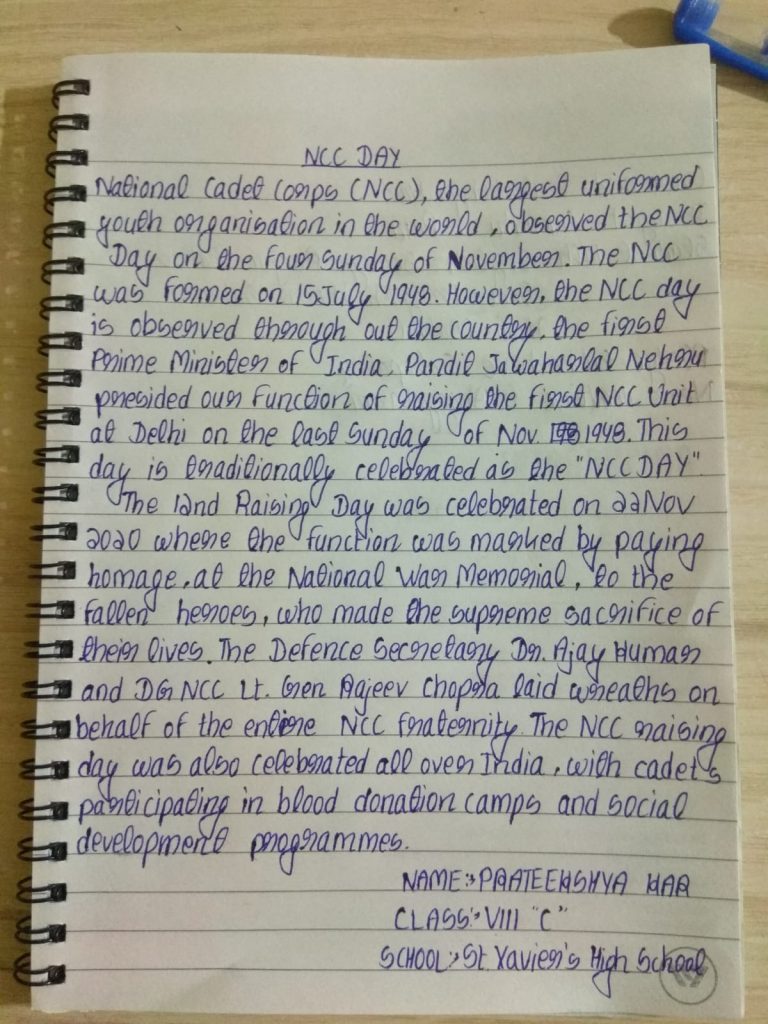 NCC DAY
National Cadet Corps (NCC), the largest uniformed
youth organisation in the world, observed the NCC
Day on the four sunday of November. The NCC
was formed on 15 July 1948. However, the NCC day
is observed through out the country, the first
Prime Minister of India, Pandit Jawaharlal Nehru
presided our function of raising the first NCC Unit
at Delhi on the last Sunday of Nov. 1948. This
day is traditionally celebrated as the "NCC DAY".
The 12nd Raising Day was celebrated on 22 Nov
2020 where the function was marked by paying
homage, at the National War Memorial, to the
fallen heroes, who made the supreme sacrifice of
their lives. The Defence Secretary Dr. Ajay Kumar
and DG NCC Lt. Gen Rajeev Chopra laid wreaths on
behalf of the entire NCC fraternity. The NCC raising
day was also celebrated all over India, with cadets
participating in blood donation camps and social
development programmes.
NAME:- PRATEEKSHYA KAR
CLASS:- VIII "C"
SCHOOL:- St Xavier's High School